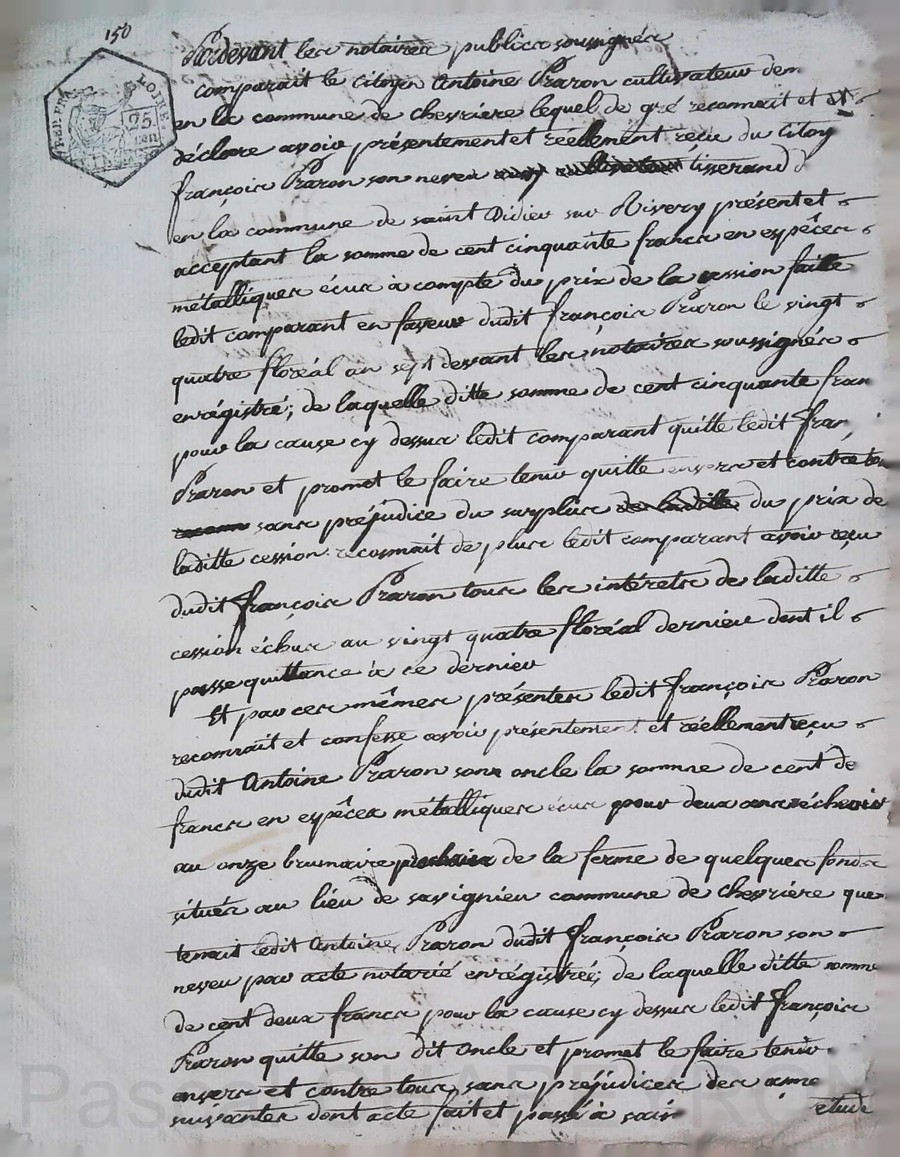 150
REP. FRA LOIRE
25
cen
Pardevant les notaires publics soussignés
comparait le citoyen Antoine Praron cultivateur dem
en la commune de chevrière lequel de gré reconnait et
déclare avoir présentement et réellement reçu du Citoy
françois Praron son neveu tisserand d
en la commune de saint Didier sur Rivery présent et
acceptant la somme de cent cinquante francs en espêces
métalliques écus à compte du prix de la cession faitte
ledit comparant en faveur dudit françois Praron le vingt
quatre floréal an sept devant les notaires soussignés
enrégistré; de laquelle ditte somme de cent cinquante fran
pour la cause cy dessus ledit comparant quitte ledit fran
Praron et promet le faire tenir quitte envers et contre tou
sans préjudice du surplus de laditte du prix de
laditte cession. reconnait de plus ledit comparant avoir reçu
dudit françois Praron tous les intérets de laditte
cession échus au vingt quatre floréal dernier dont il
passe quittance à ce dernier
Et par ces mêmes présentes ledit françois Praron
reconnait et confesse avoir présentement et réellement reçu
dudit Antoine Praron son oncle la somme de cent de
francs en espêces métalliques écus pour deux ans échus
au onze brumaire de la ferme de quelques fonds
situés au lieu de savignieu commune de chevrière que
tenait ledit Antoine Praron dudit françois Praron son
neveu par acte notarié enrégistré; de laquelle ditte somme
de cent deux francs pour la cause cy dessus ledit françois
Praron quitte son dit oncle et promet le faire tenir
envers et contre tous, sans préjudices des
suivantes dont acte fait et passé à sain étude